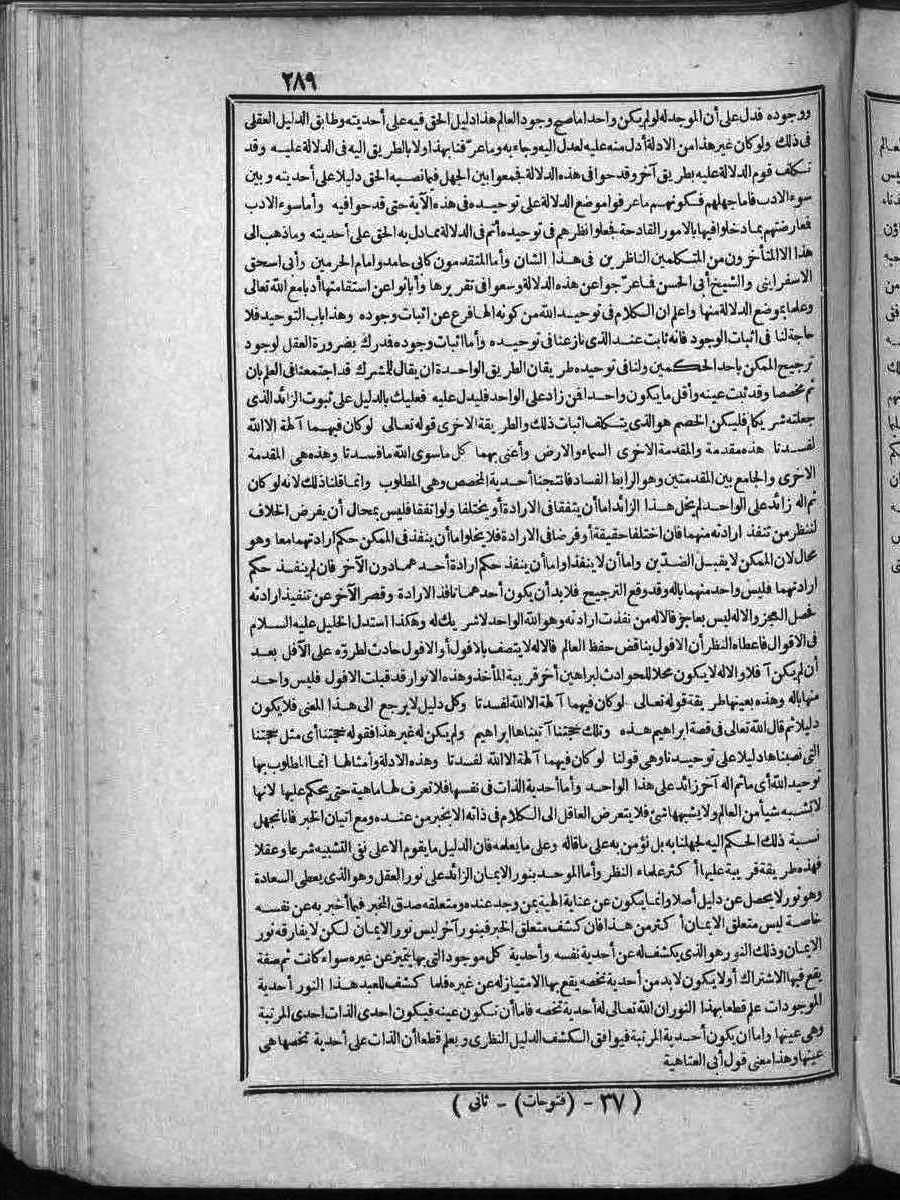 ٢٨٩
ووجوده فدل على أن الموجد له لو لم يكن واحدا ما صح وجود العالم هذا دليل الحق فيه على أحديته وطابق الدليل العقلى
فى ذلك ولو كان غير هذا من الادلة أدل منه عليه لعدل اليه وجاء به وما عرّفنا بهذا ولا بالطريق اليه فى الدلالة عليه وقد
تكلف قوم الدلالة عليه بطريق آخر وقدحوا فى هذه الدلالة فجمعوا بين الجهل فيما نصبه الحق دليلا على أحديته وبين
سوء الادب فاما جهلهم فكونهم ما عرفوا موضع الدلالة على توحيده فى هذه الآية حتى قدحوا فيه وأما سوء الادب
فمعارضتهم بما دخلوا فيها بالامور القادحة فجعلوا نظرهم فى توحيده أتم فى الدلالة مما دل به الحق على أحديته وما ذهب الى
هذا الا المتأخرون من المتكلمين الناظرين فى هذا الشان وأما المتقدمون كابى حامد وامام الحرمين وأبى اسحق
الاسفراينى والشيخ أبى الحسن فما عرّجوا عن هذه الدلالة وسعوا فى تقريرها وأبانوا عن استقامتها أدبا مع الله تعالى
وعلما بموضع الدلالة منها واعلم ان الكلام فى توحيد الله من كونه الها فرع عن اثبات وجوده وهذا باب التوحيد فلا
حاجة لنا فى اثبات الوجود فانه ثابت عند الذى نازعنا فى توحيده وأما اثبات وجوده فدرك بضرورة العقل لوجود
ترجيح الممكن باحد الحكمين ولنا فى توحيده طريقان الطريق الواحدة ان يقال للمشرك قد اجتمعنا فى العلم بان
ثم مخصصا وقد ثبت عينه وأقل ما يكون واحدا فمن زاد على الواحد فليدل عليه فعليك بالدليل على ثبوت الزائد الذى
جعلته شريكا فليكن الخصم هو الذى يتكلف اثبات ذلك والطريقة الاخرى قوله تعالى لو كان فيهما آلهة الا الله
لفسدتا هذه مقدمة والمقدمة الاخرى السماء والارض وأعنى بهما كل ما سوى الله ما فسدتا وهذه هى المقدمة
الاخرى والجامع بين المقدمتين وهو الرابط الفساد فانتجنا أحدية المخصص وهى المطلوب وانما قلنا ذلك لانه لو كان
ثم اله زائد على الواحد لم يخل هذا الزائد اما أن يتفقا فى الارادة أو يختلفا ولو اتفقا فليس بمحال أن يفرض الخلاف
لننظر من تنفذ ارادته منهما فان اختلفا حقيقة أو فرضا فى الارادة فلا يخلو اما أن ينفذ فى الممكن حكم ارادتهما معا وهو
محال لان الممكن لا يقبل الضدّين واما أن لا ينفذا واما أن ينفذ حكم ارادة أحدهما دون الآخر فان لم ينفذ حكم
ارادتهما فليس واحد منهما باله وقد وقع الترجيح فلا بد أن يكون أحدهما نافذ الارادة وقصر الآخر عن تنفيذ ارادته
فحصل العجز والاله ليس بعاجز فالاله من نفذت ارادته وهو الله الواحد لا شريك له وهكذا استدل الخليل عليه السلام
فى الاقوال فاعطاه النظر أن الافول يناقض حفظ العالم فالاله لا يتصف بالافول أو الافول حادث لطروّه على الآفل بعد
أن لم يكن آفلا والاله لا يكون محلا للحوادث لبراهين أخر قريبة المأخذ وهذه الانوار قد قبلت الافول فليس واحد
منها باله وهذه بعينها طريقة قوله تعالى لو كان فيهما آلهة الا الله لفسدتا وكل دليل لا يرجع الى هذا المعنى فلا يكون
دليلا ثم قال الله تعالى فى قصة ابراهيم هذه وتلك حجتنا آتيناها ابراهيم ولم يكن له غير هذا فقوله حجتنا أى مثل حجتنا
التى نصبناها دليلا على توحيدنا وهى قولنا لو كان فيهما آلهة الا الله لفسدتا وهذه الادلة وأمثالها انما المطلوب بها
توحيد الله أى ما ثم اله آخر زائد على هذا الواحد وأما أحدية الذات فى نفسها فلا تعرف لها ماهية حتى يحكم عليها لانها
لا تشبه شيأ من العالم ولا يشبهها شئ فلا يتعرض العاقل الى الكلام فى ذاته الا بخبر من عنده ومع اتيان الخبر فانا نجهل
نسبة ذلك الحكم اليه لجهلنا به بل نؤمن به على ما قاله وعلى ما يعلمه فان الدليل ما يقوم الا على نفى التشبيه شرعا وعقلا
فهذه طريقة قريبة عليها أكثر علماء النظر وأما الموحد بنور الايمان الزائد على نور العقل وهو الذى يعطى السعادة
وهو نور لا يحصل عن دليل أصلا وانما يكون عن عناية الهية بمن وجد عنده ومتعلقه صدق المخبر فيما أخبر به عن نفسه
خاصة ليس متعلق الايمان أكثر من هذا فان كشف متعلق الخبر فبنور آخر ليس نور الايمان لكن لا يفارقه نور
الايمان وذلك النور هو الذى يكشف له عن أحدية نفسه وأحدية كل موجود التى بها يتميز عن غيره سواء كانت ثم صفة
يقع فيها الاشتراك أو لا يكون لا بد من أحدية تخصه يقع بها الامتياز له عن غيره فلما كشف للعبد هذا النور أحدية
الموجودات علم قطعا بهذا النور ان الله تعالى له أحدية تخصه فاما أن تكون عينه فيكون احدى الذات احدى المرتبة
وهى عينها واما أن يكون أحدية المرتبة فيوافق الكشف الدليل النظرى ويعلم قطعا أن الذات على أحدية تخصها هى
عينها وهذا معنى قول أبى العتاهية
( ٣٧ - (فتوحات) - ثانى )